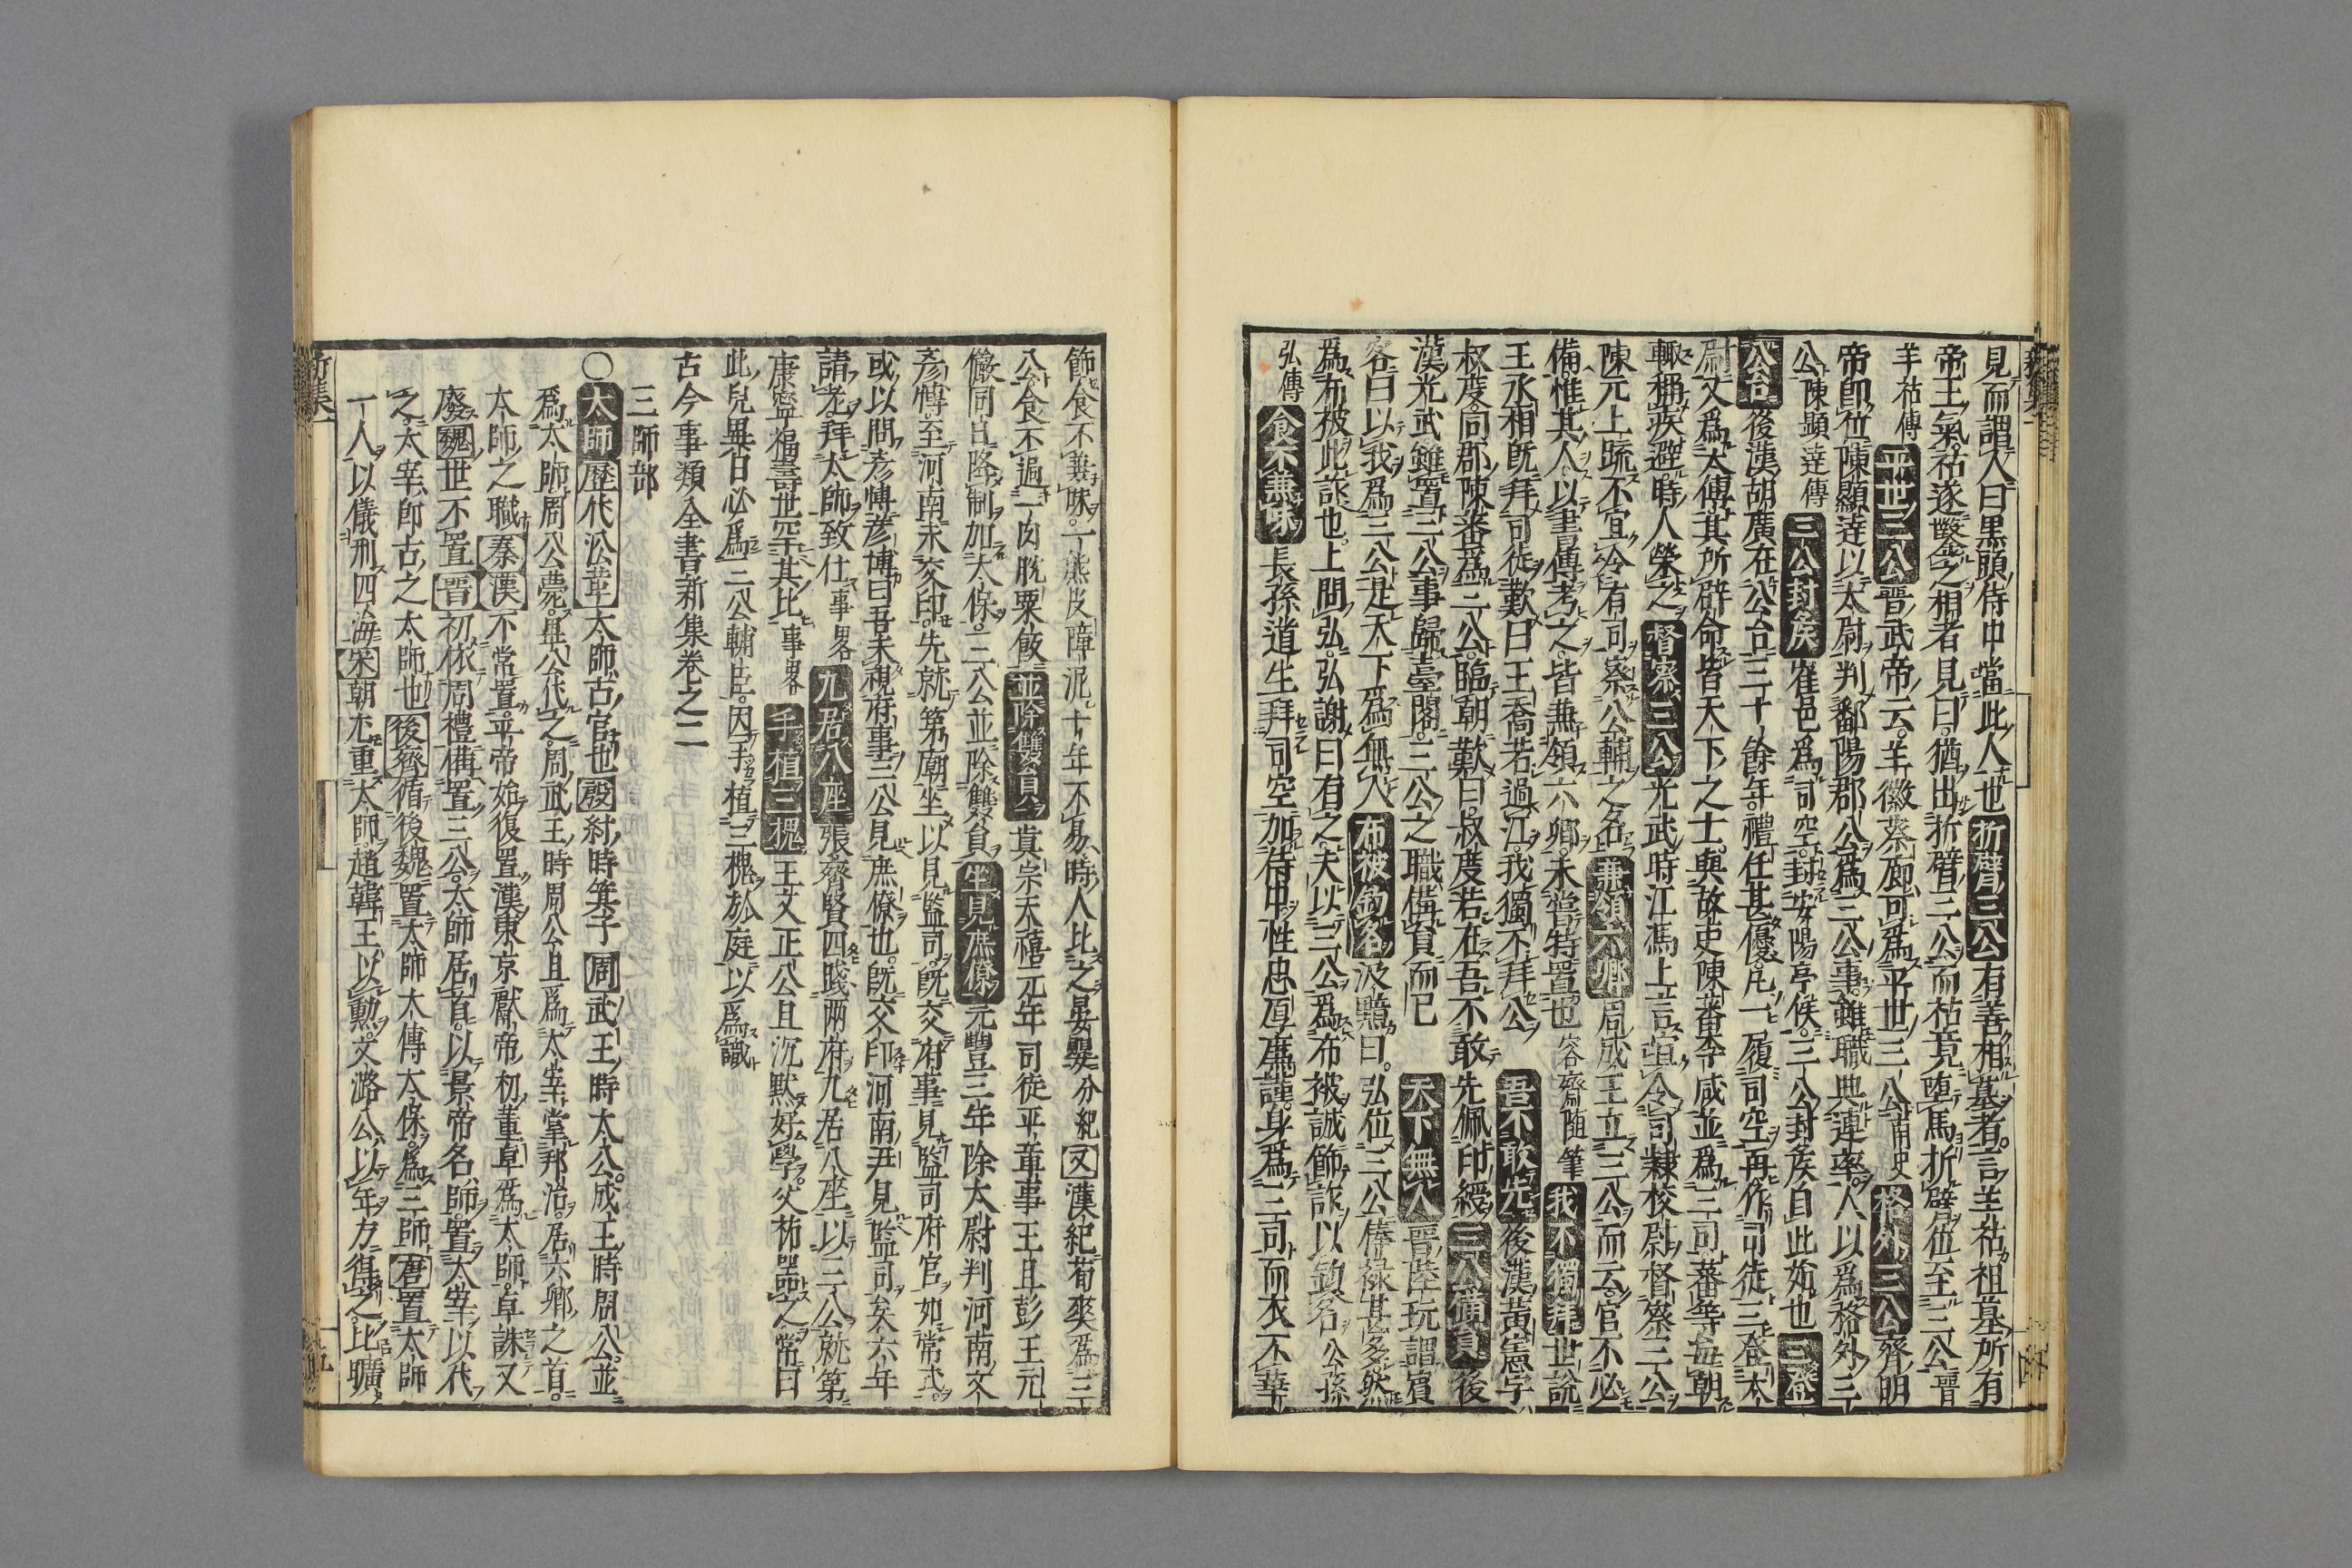 見而謂人曰黒頭侍中當此人也折臂三公有善相墓者言羊祜祖墓所有
帝王氣祜遂鑿之相者見曰猶出折臂三公而祜竟墮馬折臂位至三公晋
羊祜傳平世三公晋武帝云羊徽蔡廓可爲平世三公南史格外三公齊明
帝卽位陳顯達以太尉判鄱陽郡公爲三公事雖職典連率人以爲格外三
公陳顯達傳三公封矦崔邑爲司空封安陽亭候三公封矦自此始也三登
公台後漢胡廣在公台三十餘年禮任甚優凡一履司空再作司徒三登太
尉又爲太傅其所辟命皆天下之士與故吏陳蕃李咸並爲三司蕃等每朝
輙稱疾避時人榮之督察三公光武時江馮上言宜令司隸校尉督察三公
陳元上疏不宜令有司察公輔之名兼領六卿周成王立三公而云官不必
備惟其人以書傳考之皆兼領六卿未嘗特置也容齋随筆我不獨拜世說
王丞相旣拜司徒歎曰王喬若過江我獨不拜公吾不敢先後漢黃憲字
叔度同郡陳蕃爲三公臨朝歎曰叔度若在吾不敢先佩印綬三公備員後
漢光武雖置三公事歸臺閣三公之職備員而已天下無人晋陸玩謂賓
客曰以我爲三公是天下爲無人布被釣名汲黯曰弘位三公俸禄甚多然
爲布被此詐也上問弘弘謝曰有之夫以三公爲布被誠飾詐以釣名公孫
弘傳食不兼味長孫道生拜司空加侍中性忠厚廉謹身爲三司而衣不華
飾食不兼味一熊皮障泥十年不易時人比之晏嬰分紀又漢紀荀爽爲三
公食不過一肉脫粟飯並除雙員眞宗天禧元年司徒平章事王旦彭王元
儼同日降制加太保三公並除雙員坐見庶僚元豐三年除太尉判河南文
彦愽至河南未交印先就第廟坐以見監司旣交府事見監司府官如常式
或以問彦愽彦博曰吾未視府事三公見庶僚也旣交印河南尹見監司矣六年
請老拜太師致仕事畧九居八座張齊賢四踐兩府九居八座以三公就第
康寧福壽世罕其比事畧手植三槐王文正公旦沉默好學父祐器之常曰
此兒異日必爲三公輔臣因手植三槐於庭以爲識
古今事類全書新集卷之二
三師部
○太師歷代沿革太師古官也殷紂時箕子周武王時太公成王時周公並
爲太師周公薨畢公代之周武王時周公且爲太宰掌邦治居六鄉之首
太師之職秦漢不常置平帝始復置漢東京獻帝初董卓爲太師卓誅又
廢魏世不置晋初依周禮備置三公太師居首以景帝名師置太宰以代
之太宰卽古之太師也後齊循後魏置太師太傅太保爲三師唐置太師
一人以儀刑四海宋朝尤重太師趙韓王以勲文潞公以年力得之比曠